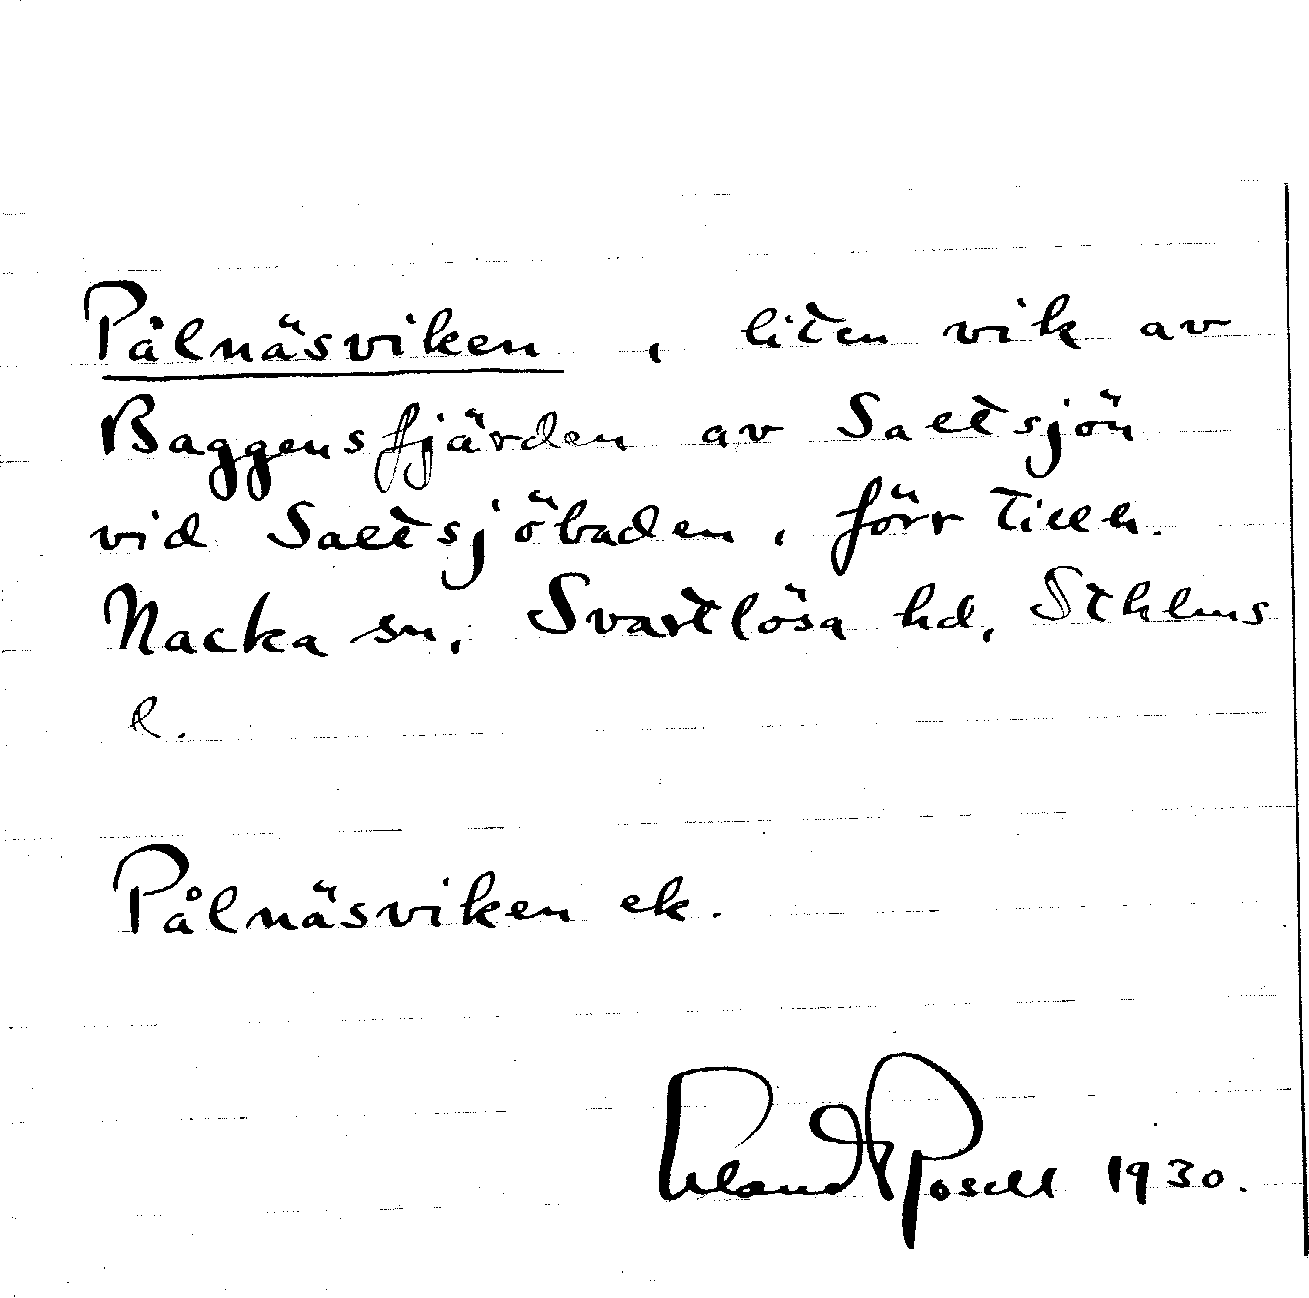 Pålnäsviken, liten vik av
Baggensfjärden av Saltsjön
vid Saltsjöbaden, förr tillh.
Nacka sn, Svartlösa hd, Sthlms
l.
Pålnäsviken ek.
Erland Rosell 1930.